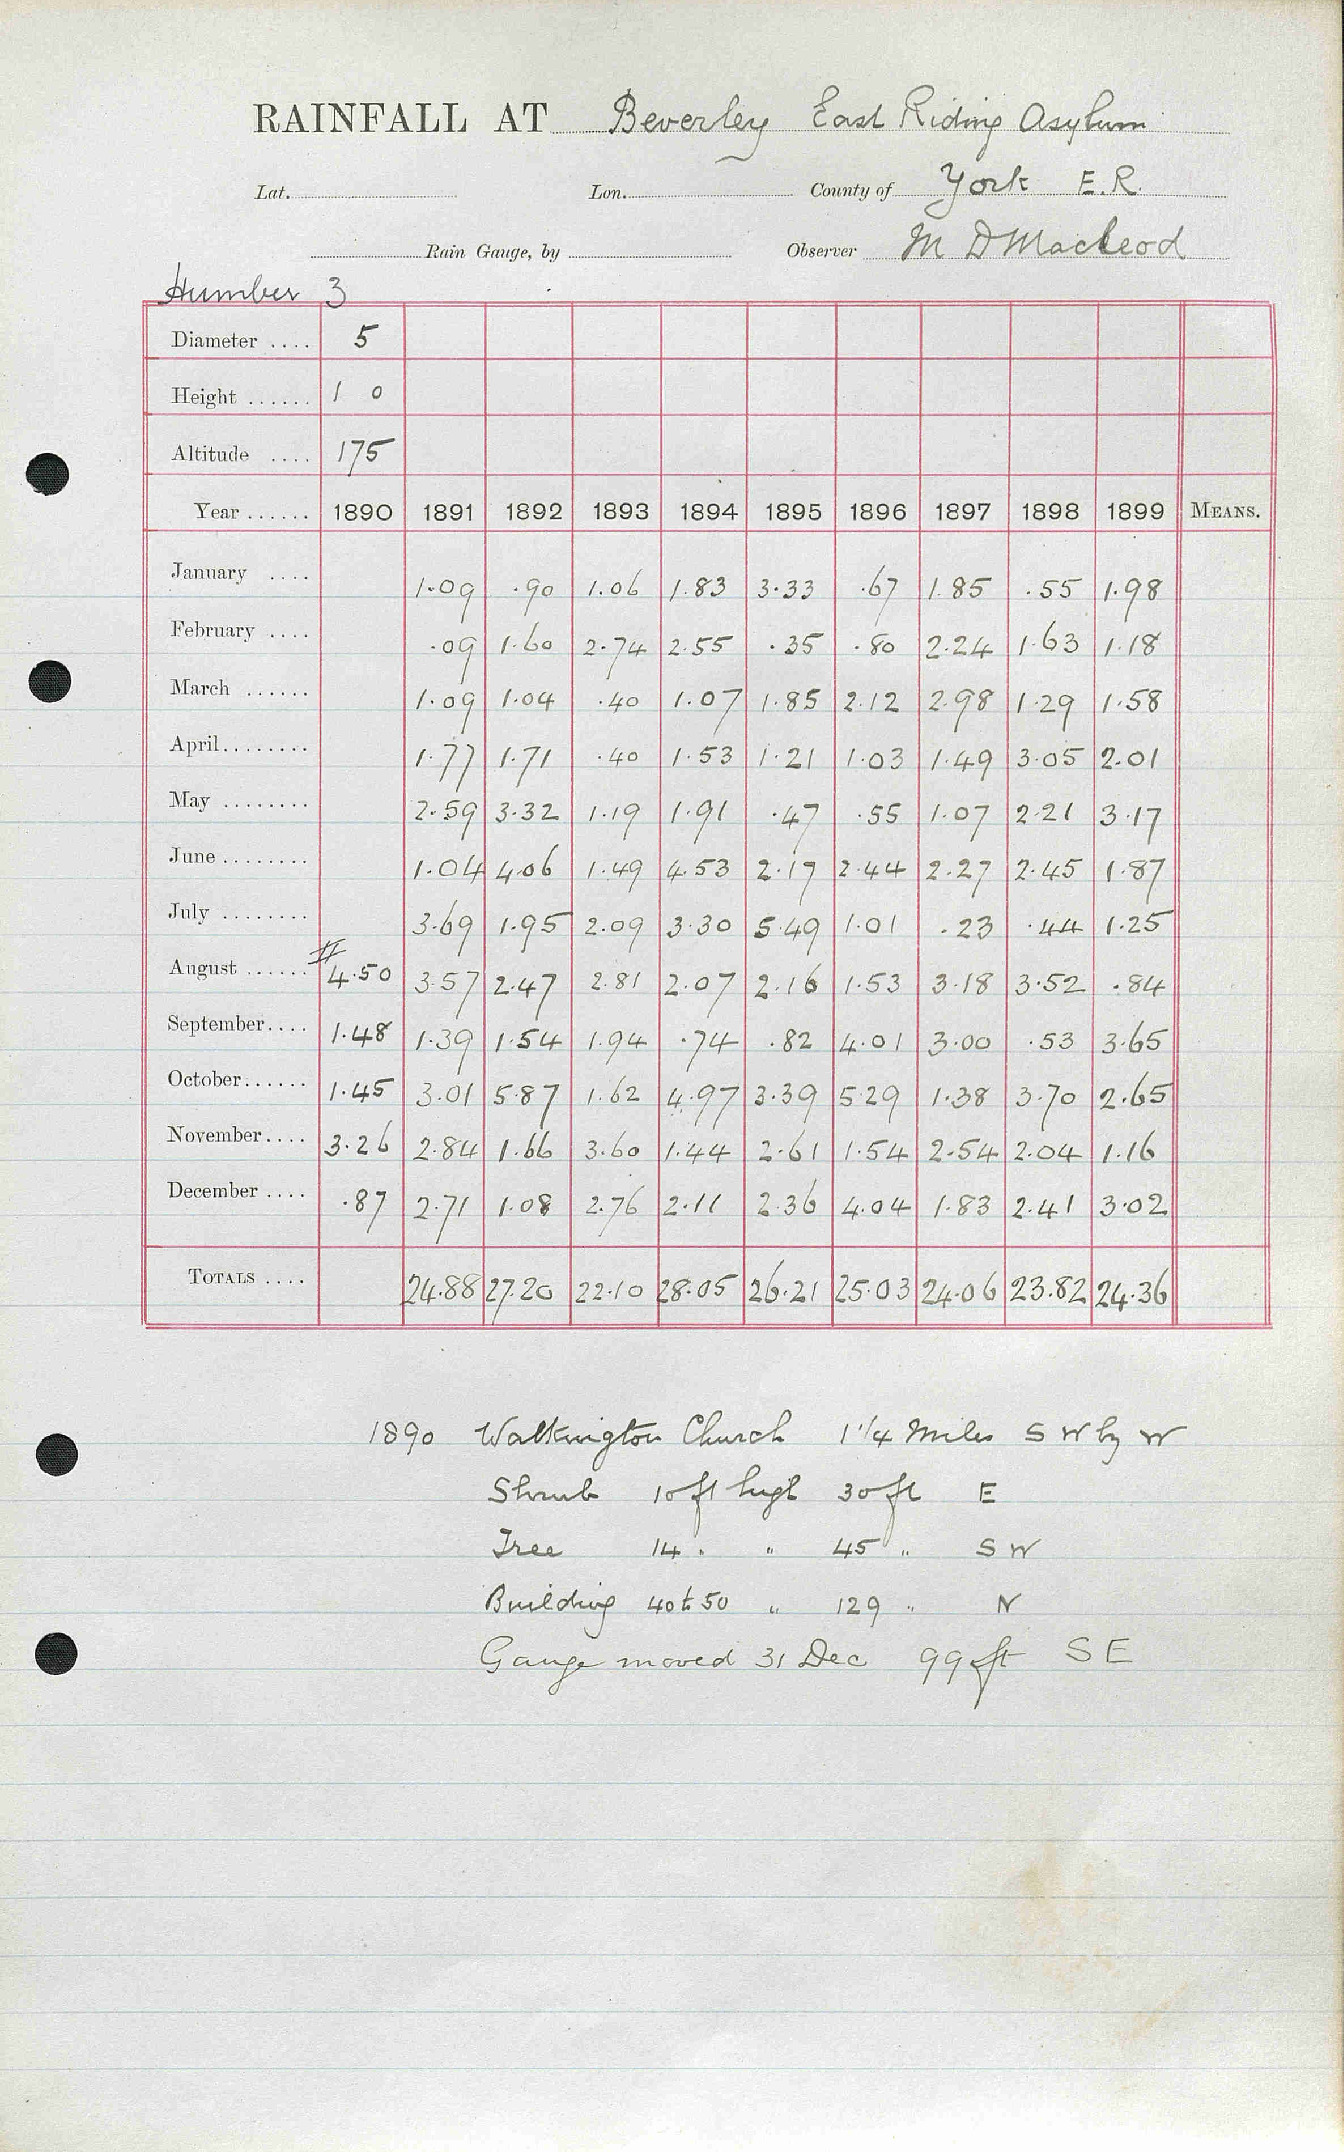 RAINFALL AT Beverley East Riding Asylum
Lat. Lon. County of York E.R.
Rain Gauge, by Observer M D Macleod
Humber 3
Diameter .... 5
Height ...... 1 0
Altitude .... 175
Year ...... 1890 1891 1892 1893 1894 1895 1896 1897 1898 1899 MEANS.
January .... 1.09 .90 1.06 1.83 3.33 .67 1.85 .55 1.98
February .... .09 1.60 2.74 2.55 .35 .80 2.24 1.63 1.18
March ...... 1.09 1.04 .40 1.07 1.85 2.12 2.98 1.29 1.58
April........ 1.77 1.71 .40 1.53 1.21 1.03 1.49 3.05 2.01
May ........ 2.59 3.32 1.19 1.91 .47 .55 1.07 2.21 3.17
June ........ 1.04 4.06 1.49 4.53 2.17 2.44 2.27 2.45 1.87
July ........ 3.69 1.95 2.09 3.30 5.49 1.01 .23 .44 1.25
August ...... # 4.50 3.57 2.47 2.81 2.07 2.16 1.53 3.18 3.52 .84
September.... 1.48 1.39 1.54 1.94 .74 .82 4.01 3.00 .53 3.65
October...... 1.45 3.01 5.87 1.62 4.97 3.39 5.29 1.38 3.70 2.65
November.... 3.26 2.84 1.66 3.60 1.44 2.61 1.54 2.54 2.04 1.16
December .... .87 2.71 1.08 2.76 2.11 2.36 4.04 1.83 2.41 3.02
TOTALS .... 24.88 27.20 22.10 28.05 26.21 25.03 24.06 23.82 24.36
1890 Walkington Church 1 1/4 Miles S W by W
Shrub 10 ft high 30 ft E
Tree 14 . " 45 " S W
Building 40 to 50 " 129 " N
Gauge moved 31 Dec 99 ft S E